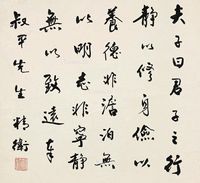 夫子曰君子之行
靜以修身儉以
養德非澹泊無
以明志非寧靜
無以致遠 奉
叔平先生 精衛